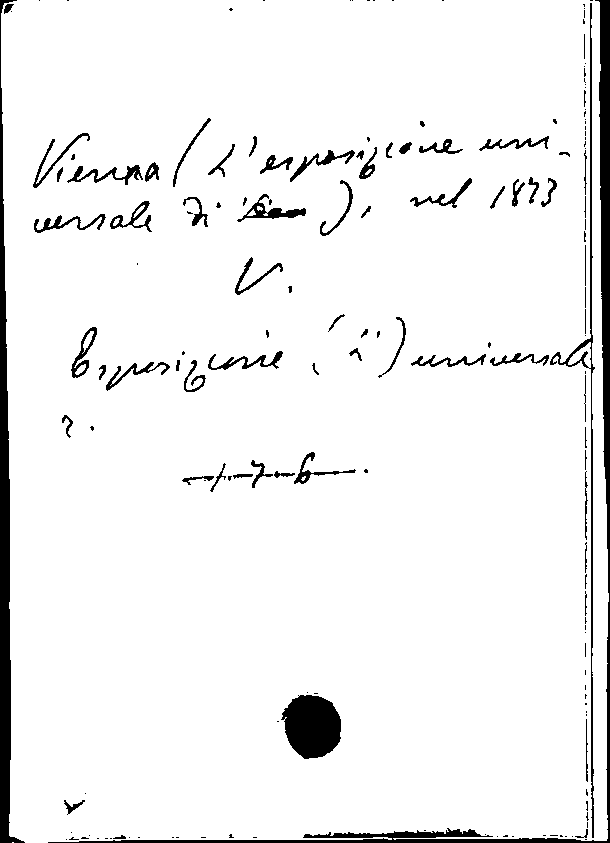 Vienna (L'esposizione uni-
versale di), nel 1873
V.
Esposizione (L') universale
176.